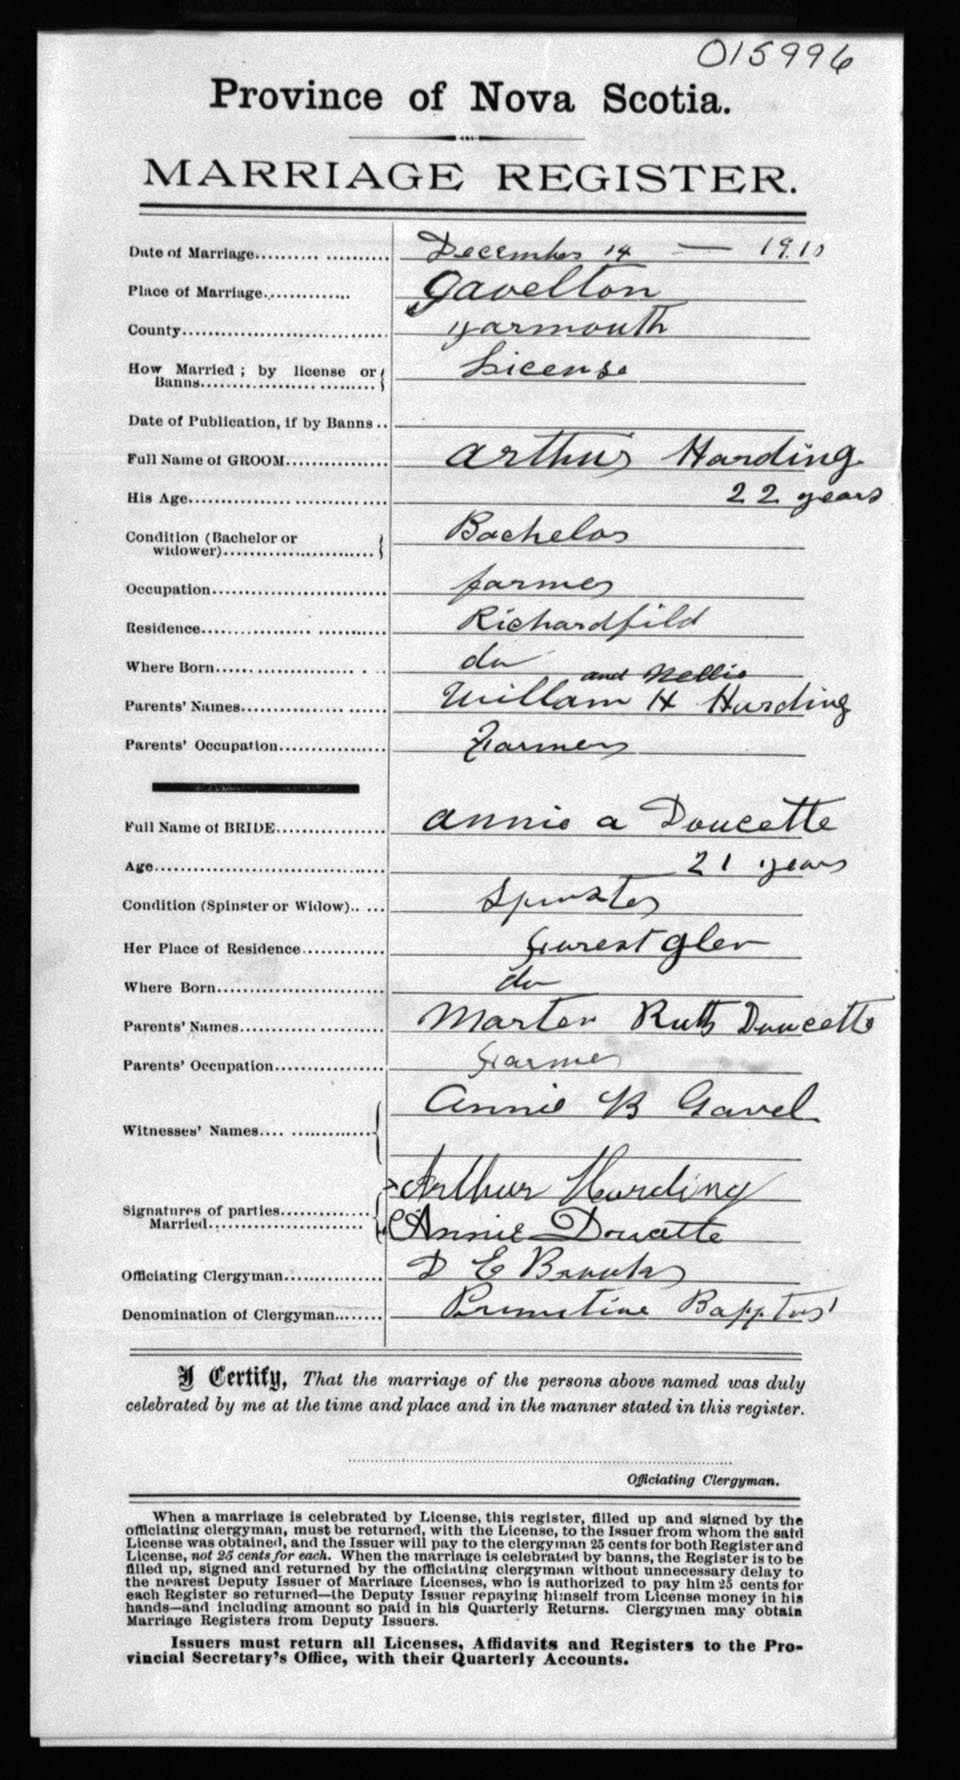 015996
Province of Nova Scotia.
MARRIAGE REGISTER.
Date of Marriage.......... December 14 — 1910
Place of Marriage.............. Gavelton
County.................................... Yarmouth
How Married ; by license or
Banns.............................. License
Date of Publication, if by Banns ..
Full Name of GROOM................. Arthur Harding
His Age................................... 22 years
Condition (Bachelor or
widower)........................... Bachelor
Occupation............................... farmer
Residence................................ Richardfild
Where Born............................ do
and Nellie
Parents' Names........................ Willam H Harding
Parents' Occupation.................. Farmers
Full Name of BRIDE.................. Annie a Doucette
Age........................................ 21 years
Condition (Spinster or Widow).. .... Spinster
Her Place of Residence............. Forest Glen
Where Born............................ do
Parents' Names........................ Marten Ruth Doucette
Parents' Occupation.................. Farmer
Witnesses' Names.................... Annie B Gavel
Signatures of parties.............. Arthur Harding
Married........................... Annie Doucette
Officiating Clergyman............... D E Brooks
Denomination of Clergyman........ Primative Bapptus'
I Certify, That the marriage of the persons above named was duly
celebrated by me at the time and place and in the manner stated in this register.
Officiating Clergyman.
When a marriage is celebrated by License, this register, filled up and signed by the
officiating clergyman, must be returned, with the License, to the Issuer from whom the said
License was obtained, and the Issuer will pay to the clergyman 25 cents for both Register and
License, not 25 cents for each. When the marriage is celebrated by banns, the Register is to be
filled up, signed and returned by the officiating clergyman without unnecessary delay to
the nearest Deputy Issuer of Marriage Licenses, who is authorized to pay him 25 cents for
each Register so returned—the Deputy Issuer repaying himself from License money in his
hands—and including amount so paid in his Quarterly Returns. Clergymen may obtain
Marriage Registers from Deputy Issuers.
Issuers must return all Licenses, Affidavits and Registers to the Pro-
vincial Secretary's Office, with their Quarterly Accounts.